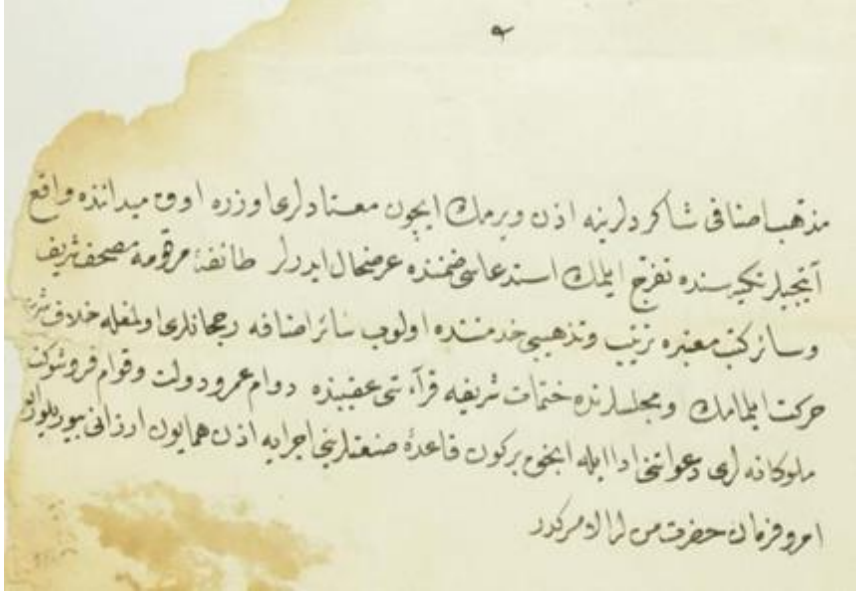 مذهب اصنافى شاكردلرينه اذن ويرمك ايچون معتادلرى اوزره اوق ميداننده واقع
آتيجيلر تكيه سنده تفرج ايلمك استدعاسى ضمننده عرضحال ايدرلر طائفهٔ مرقومه مصحف شريف
وسائر كتب معتبره تزيين وتذهيبى خدمتنده اولوب سائر اصنافه رجحانلرى اولمغله خلاف
حركت ايلمامك ومجلسلرنده ختمات شريفه قرآءتى عقيبنده دوام عمر ودولت وقوام فر وشوكت
ملوكانه لرى دعواتنى ادا ايله انجق بركون قاعدهٔ صنعتلرينى اجرايه اذن همايون ارزانى بيوريلور
امر وفرمان حضرت من له الامركدر